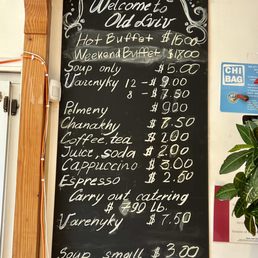 Welcome to
Old Lviv
Hot Buffet $15.00
Weekend Buffet $18.00
Soup only $5.00
Varenyky 12 - $9.00
8 - $7.50
Pelmeny $9.00
Chanakhy $7.50
Coffee, tea $2.00
Juice, soda $2.00
Cappuccino $3.00
Espresso $2.50
Carry out catering
$7.99 lb.
Varenyky $7.50
Soup small $3.00
CHI
BAG